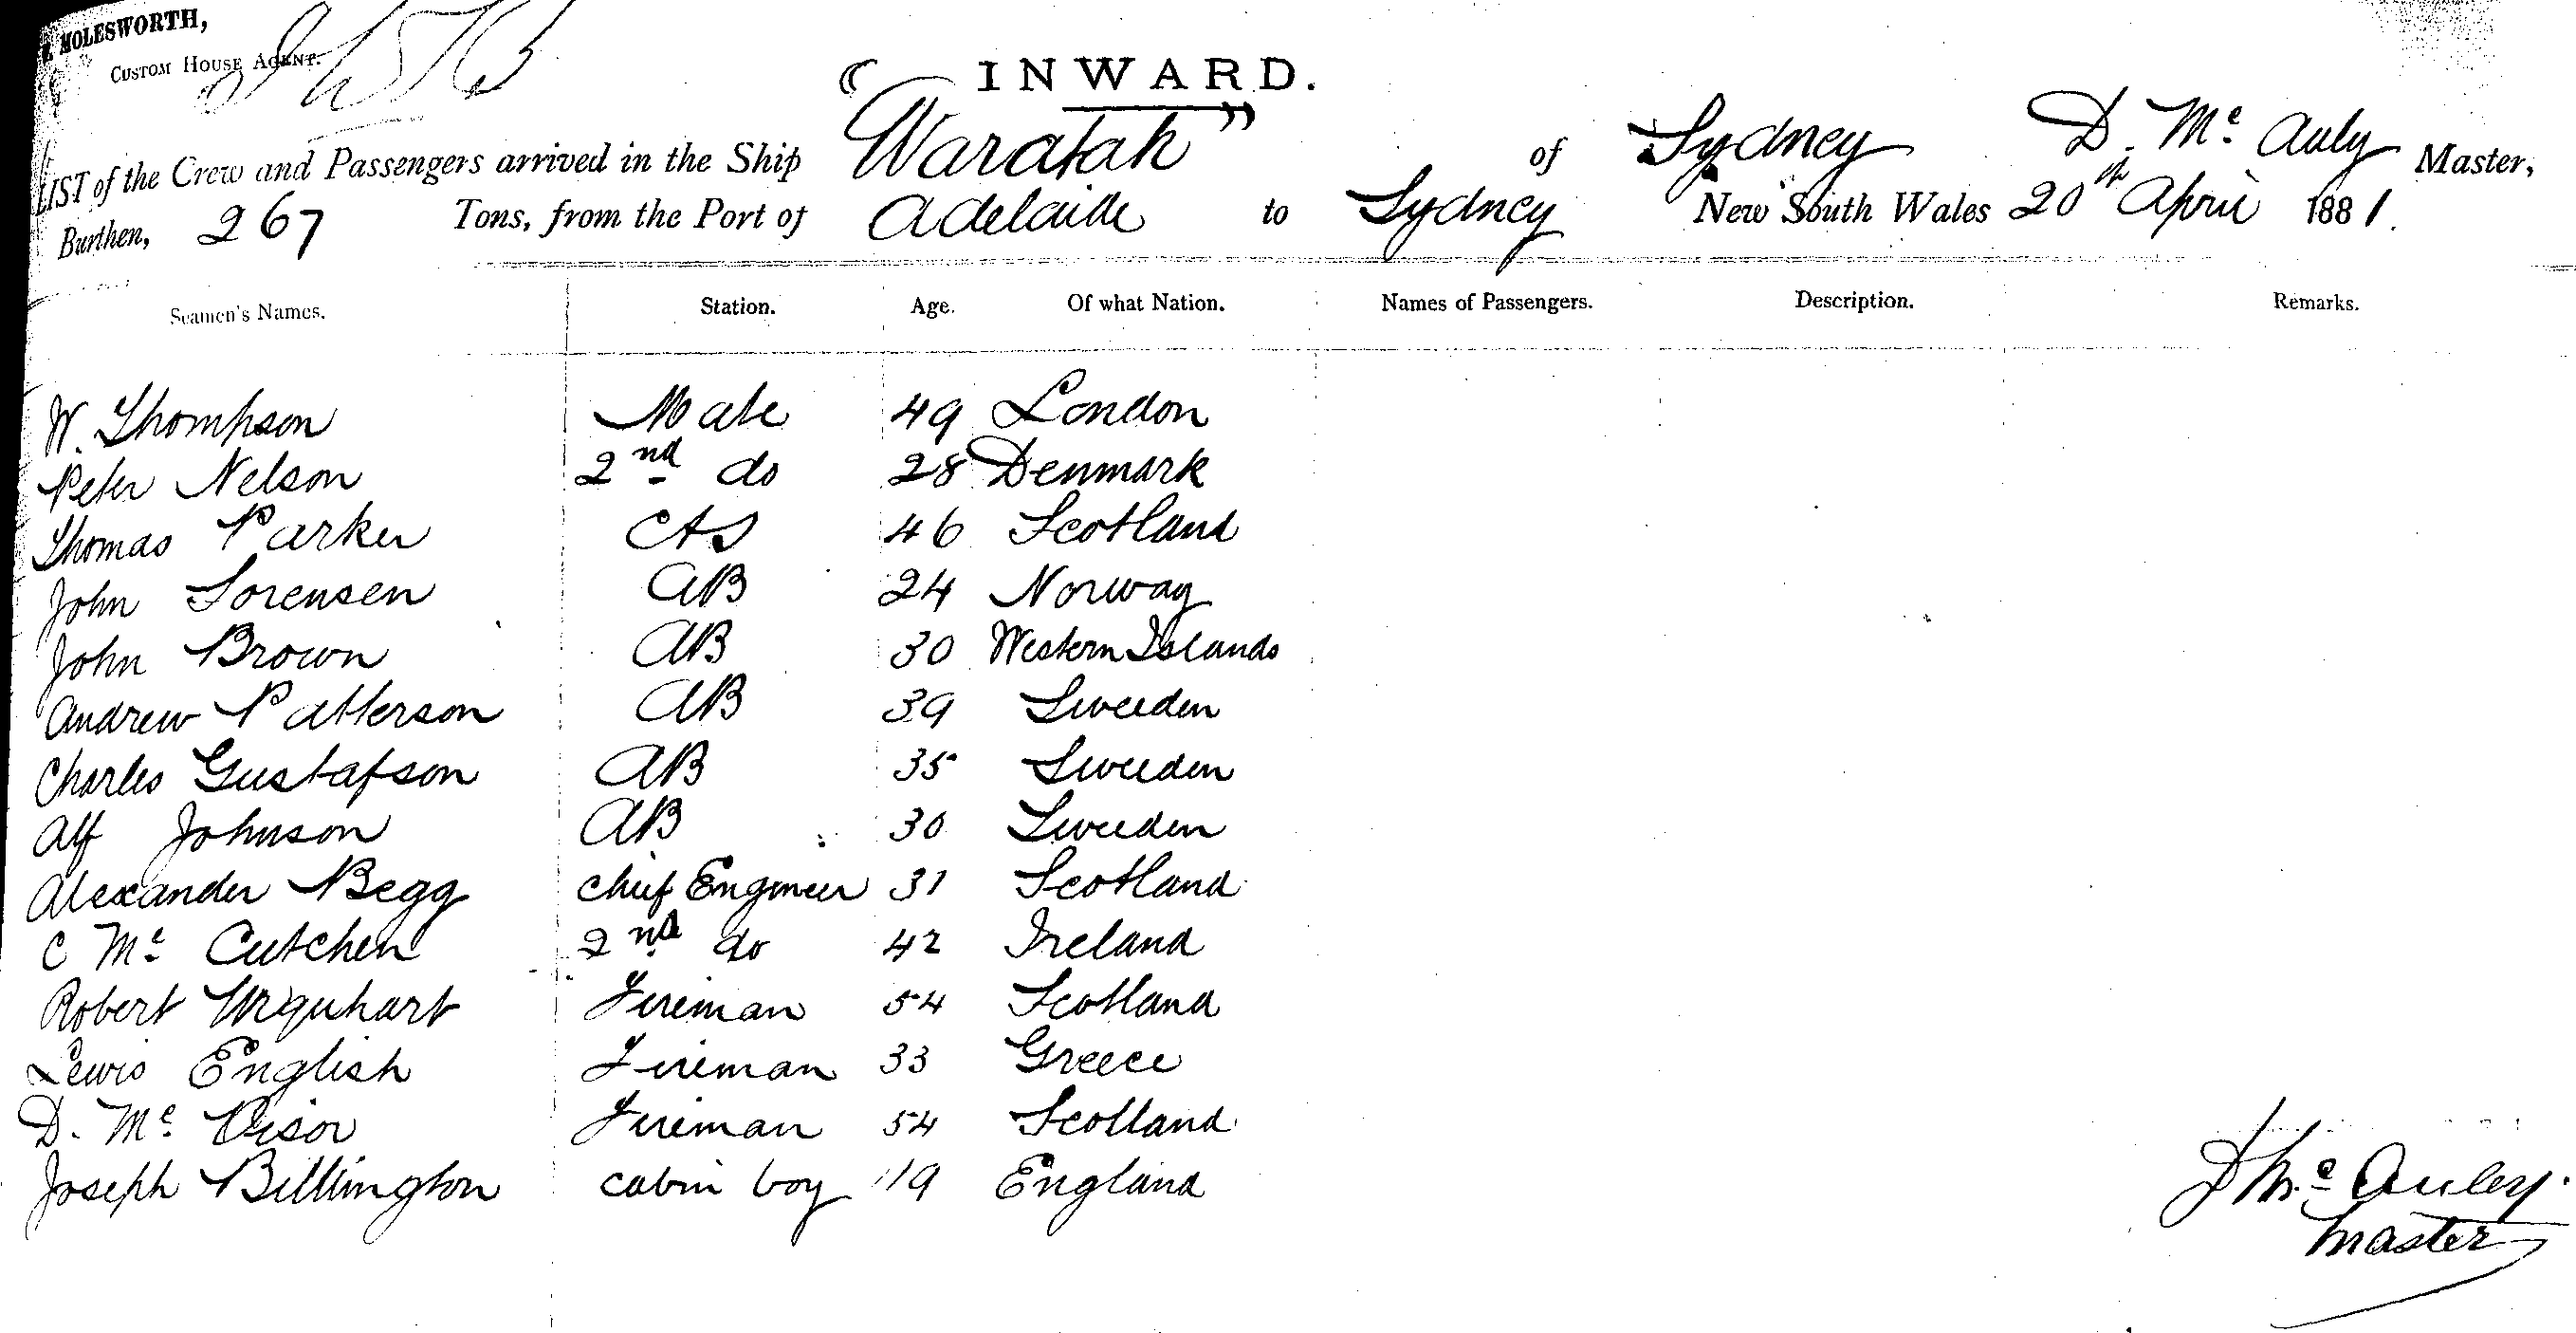 MOLESWORTH,
CUSTOM HOUSE AGENT.
INWARD.
LIST of the Crew and Passengers arrived in the Ship "Waratah" of Sydney D. Mc Auly Master,
Burthen, 267 Tons, from the Port of Adelaide to Sydney New South Wales 20th April 1881.
Seamen's Names. Station. Age. Of what Nation. Names of Passengers. Description. Remarks.
W. Thompson Mate 49 London
Peter Nelson 2nd do 28 Denmark
Thomas Parker 46 Scotland
John Sorensen AB 24 Norway
John Brown AB 30 Western Islands
Andrew Patterson AB 39 Sweeden
Charles Gustafson AB 35 Sweeden
Alf Johnson AB 30 Sweeden
Alexander Begg Chief Engineer 31 Scotland
C Mc Cutchen 2nd do 42 Ireland
Robert Urquhart Fireman 54 Scotland
Lewis English Fireman 33 Greece
D. Mc Visor Fireman 54 Scotland
Joseph Billington cabin boy 19 England
D Mc Auley.
Master